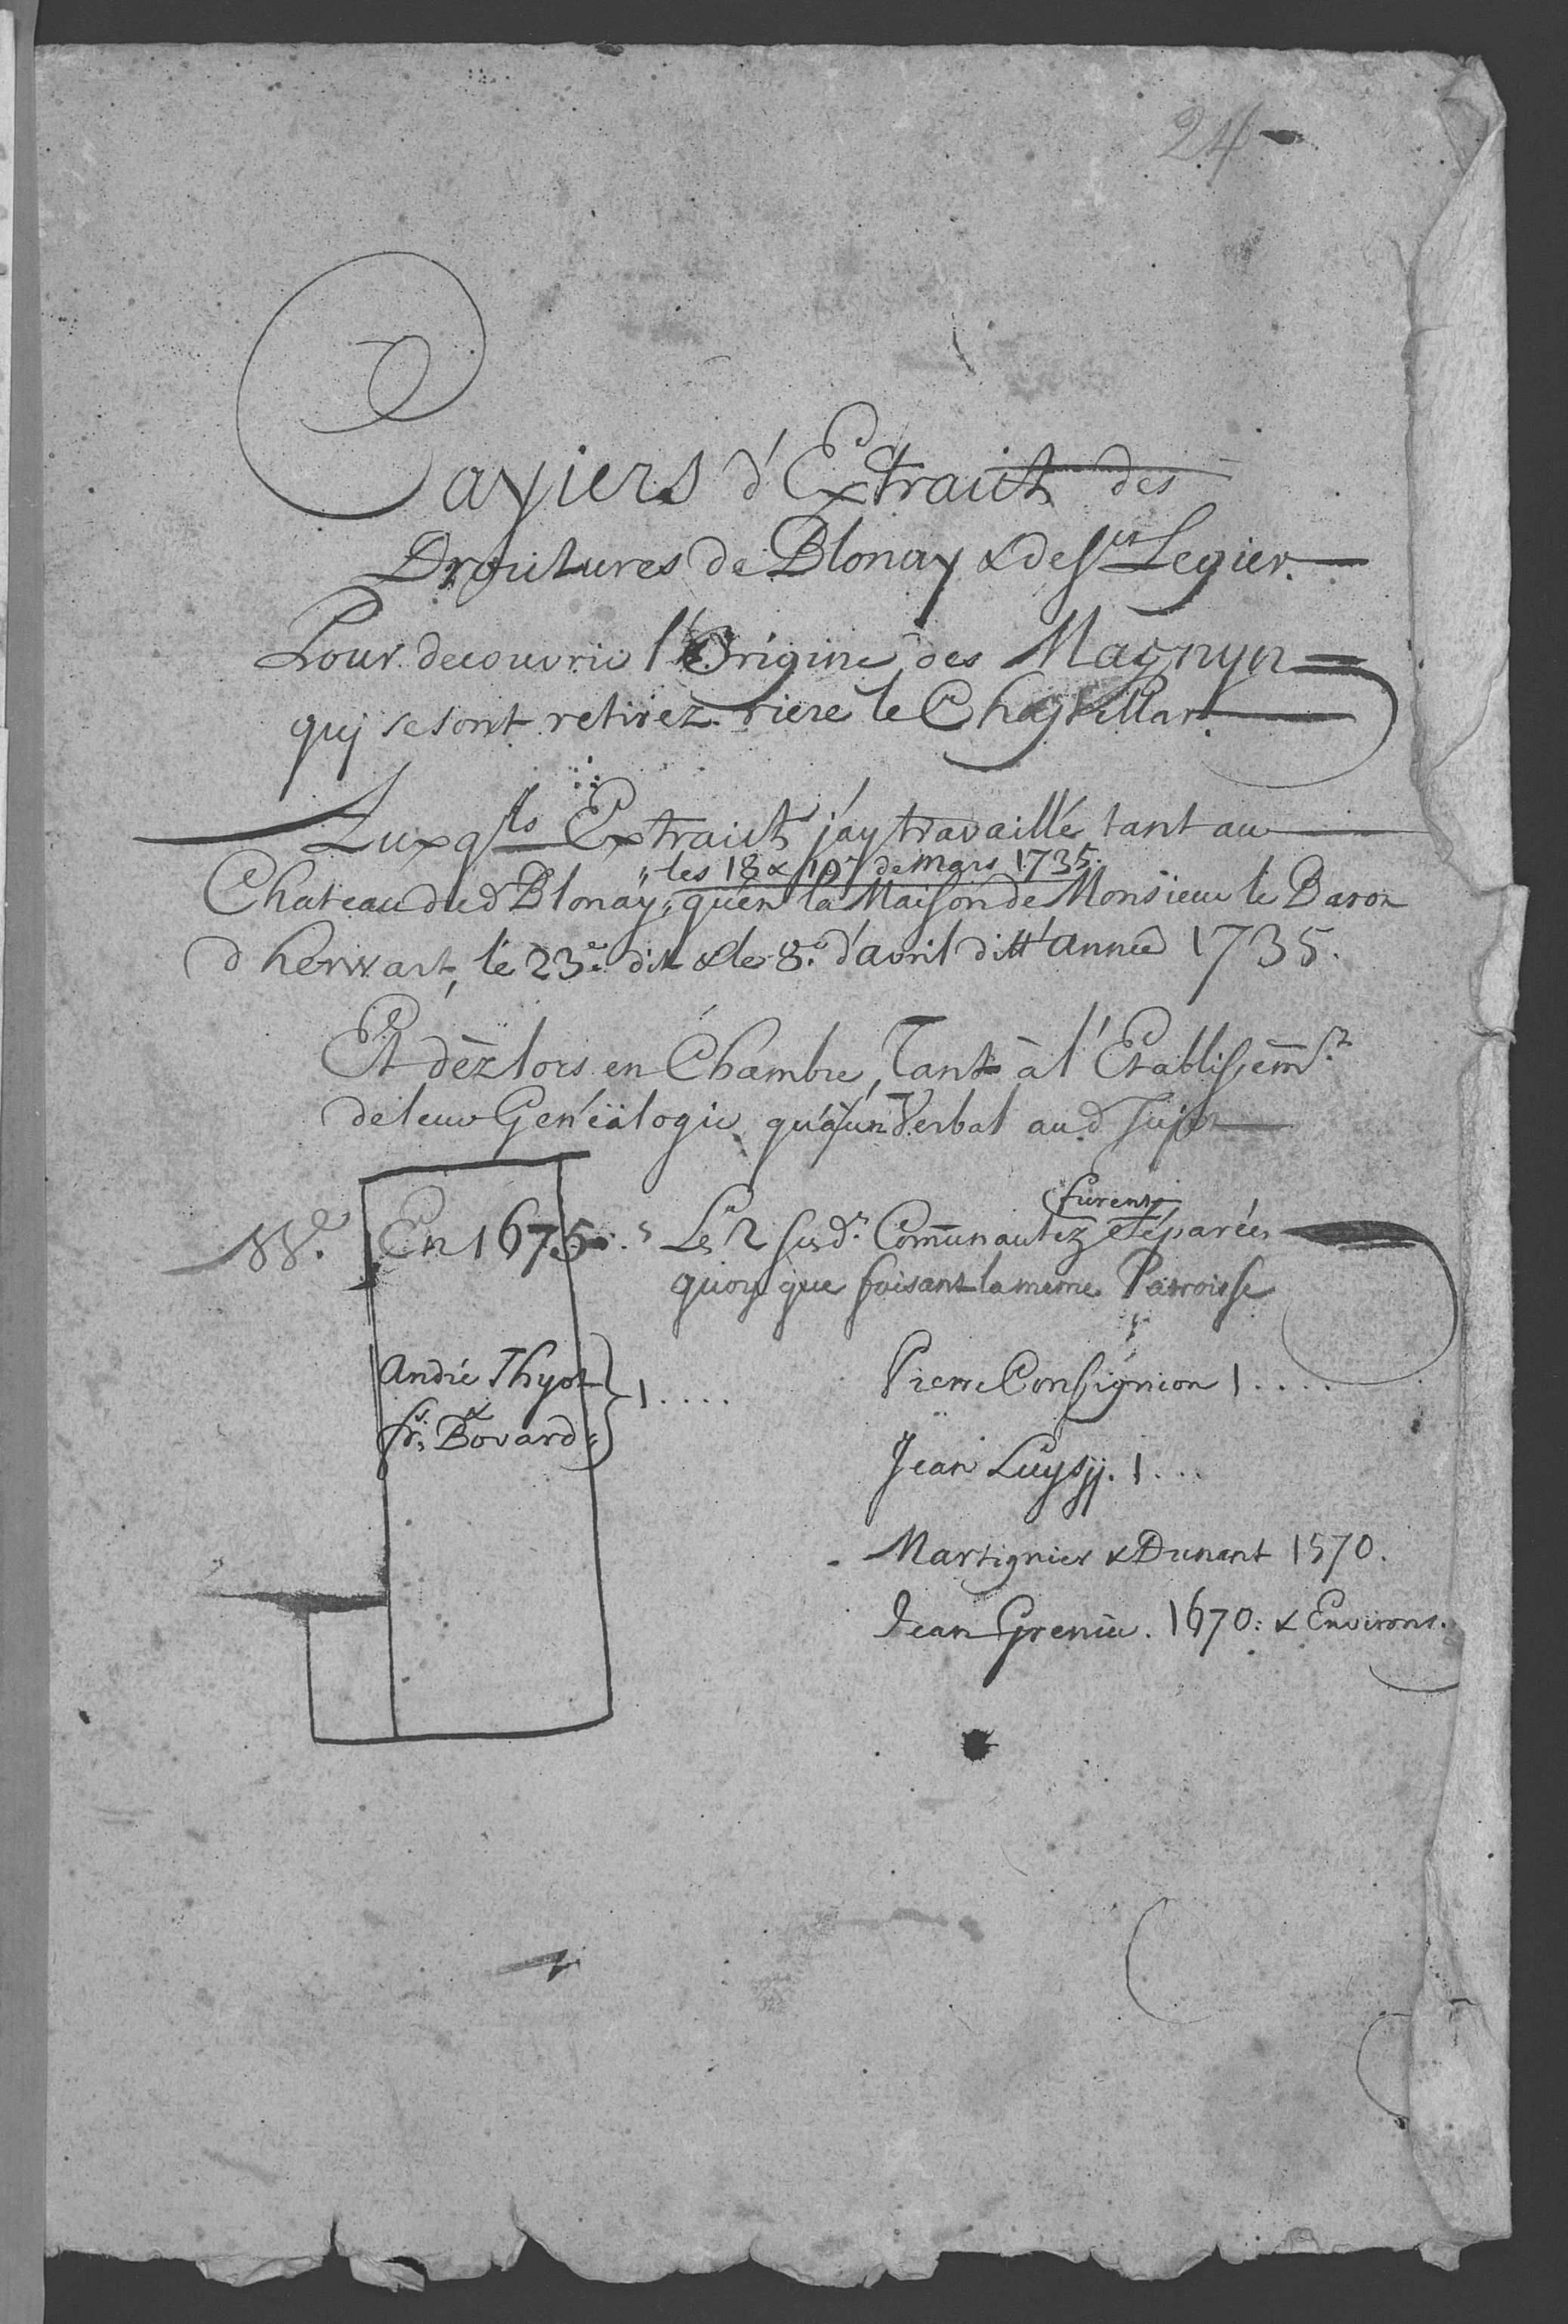 24
Cayiers d'Extraict des
Droitures de Blonay & de St Legier.
Pour decouvrir l'Origine des Magnyn
qui se sont retirez riere le Chastellar
Auxqls Extraict j'ay travaillé tant au
"les 18 & 19e de mars 1735.
Chateau dud Blonay, qu'en la Maison de Monsieur le Baron
d'herwart, le 23e dit & le 8e d'avril ditt' année 1735.
Et dèz lors en Chambre, Tant à l'Etablissemt
de leur Genéälogie qu'à un Verbal aud Sujet
furent
NB. En 1675. Les 2 susd. Communautez Séparées
quoy que faisant la meme Parroisse
André Thyot 1 .... Pierre Consignion 1 ....
&
fr. Bovard
Jean Luysy. 1 ...
Martignier & Dunant 1570.
Jean Grenier. 1670: & Environs.